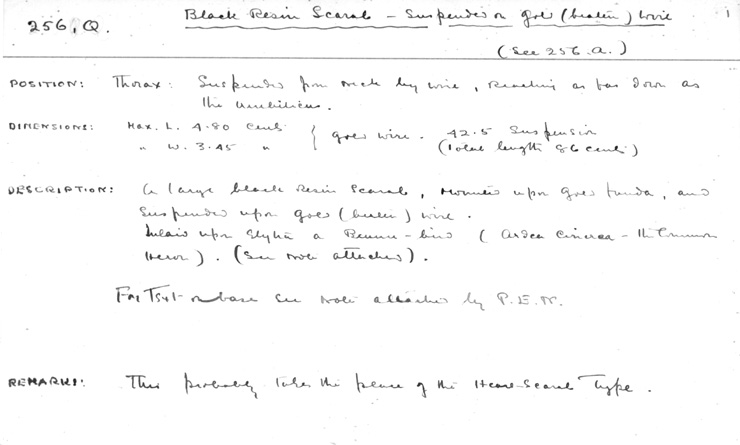 256, Q. Black Resin Scarab – Suspended on gold (beaten) wire 1
(See 256.a.)
POSITION: Thorax: Suspended from neck by wire, reaching as far down as
the umbilicus.
DIMENSIONS: Max. L. 4.80 cents } gold wire. 42.5 Suspension
" W. 3.45 " (total length 86 cents)
DESCRIPTION: A large black resin scarab, mounted upon gold funda, and
suspended upon gold (beaten) wire.
Inlaid upon Elytra a Bennu-bird (Ardea cinerea – the Common
Heron). (See note attached).
For Text on base see note attached by P.E.N.
REMARKS: This probably takes the place of the Heart-Scarab Type.